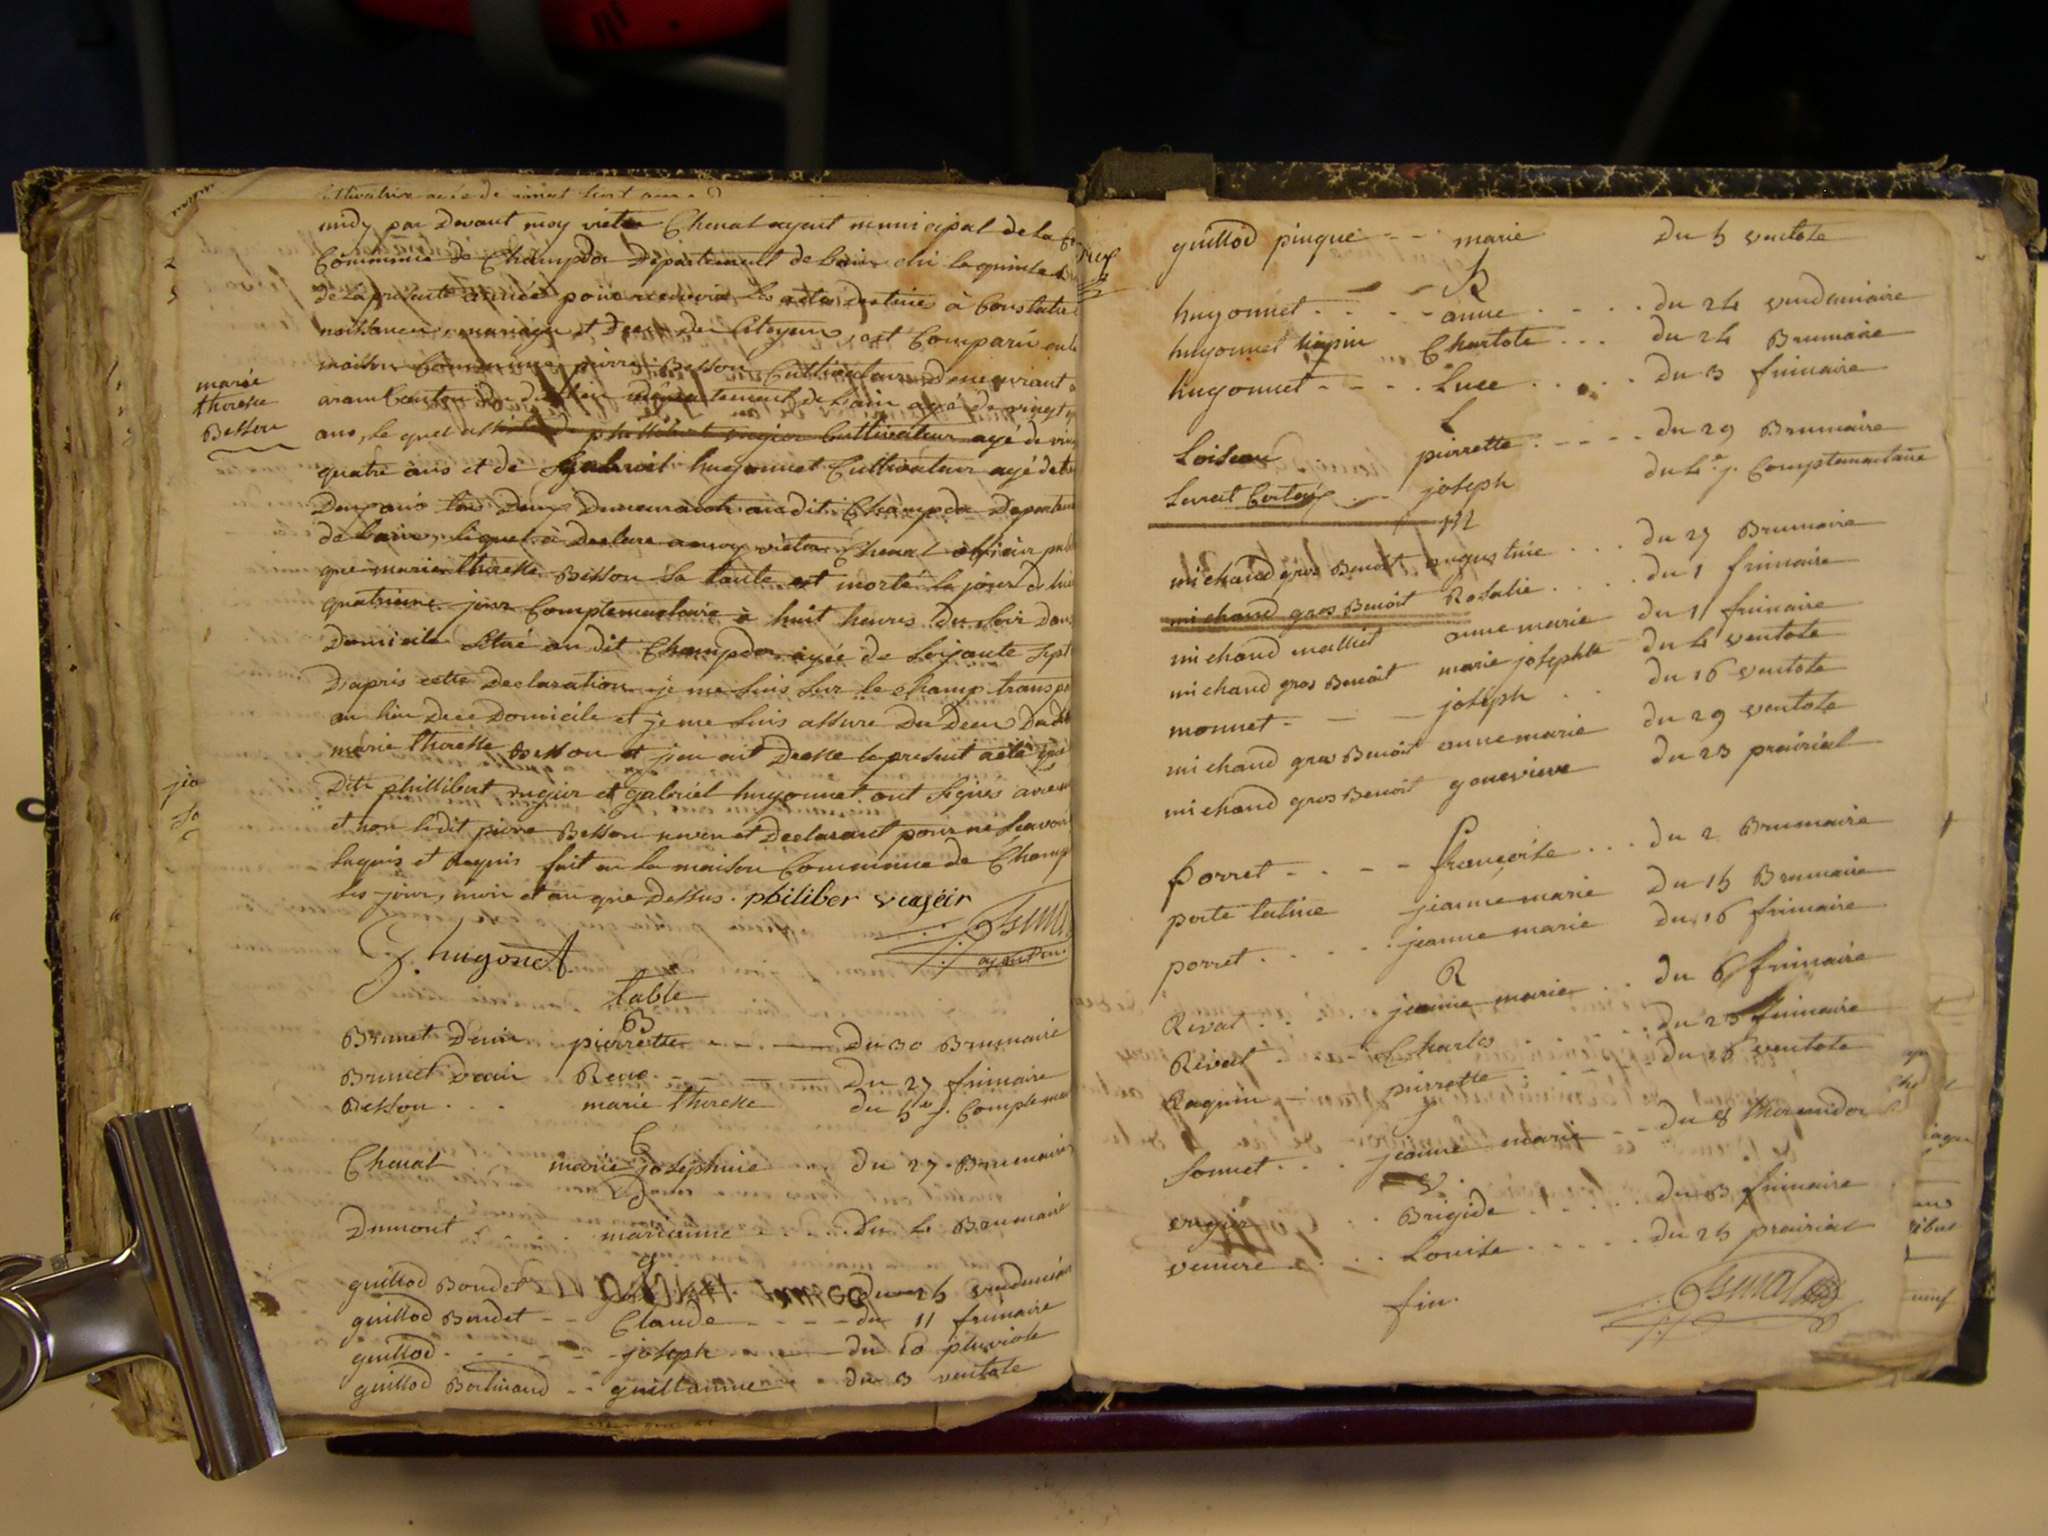 midy par devant moy victor Chenat agent municipal de la
Commune de Champdor Departement de Lain elu le quinze
de la presente année pour recevoir les actes destinés à Constater
naissances, mariages et deces des Citoyens, est Comparu en la
maison Commune pierre Besson Cultivateur demeurant
aram Canton du dit lieu département de Lain agé de vingt
marie
therese
Besson
ans, le quel assisté de phillibert vugier Cultivateur agé de
quatre ans et de gabriel hugonnet Cultivateur agé de
Deux ans tou Deux Demeurants audit Champdor Departement
de Lain, lequel à Declare a moy victor Chenat officier
que marie therese Besson sa tante est morte le jour d hier
quatrieme jour Complementaire à huit heures du soir dans
Domicile situé audit Champdor agée de soixante sept
D'apres cette Declaration je me suis sur le champ transporté
au lieu De ce Domicile et je me suis assuré Du Deces Dudit
marie therese Besson et j'en ait Dresse le present acte que
Dits phillibert vugier et gabriel hugonnet ont signés avec
et non ledit pierre Besson neveu et Declarant pour ne scavoir
suquis et requis fait en la maison Commune de Champ
les jour, mois et an que Dessus. philiber viajeir
G. hugonet
agent m.
table
B
Brunet Denis pierrette - - - Du 30 Brumaire
Brunet vouin Rene - - - Du 27 frimaire
Besson . . . marie therese du 5e j. Complemen
C
Chenat marie josephine Du 27 Brumaire
D
Dumont . . marianne . . . Du 4 Brumaire
g
guillod Boudet du 15 vendemiaire
guillod Boudet - - Claude - - - - du 11 frimaire
guillod . . . joseph du 10 pluviose
guillod Bertinand - - guillaume du 3 ventose
guillod pinque - - marie Du 5 ventose
h
hugonnet . . . anne . . . . du 24 vendemiaire
hugonnet lupin Charlote . . . du 24 Brumaire
hugonnet - - - . Luce . . . . Du 3 frimaire
L
Loiseau pierrette . - - - - du 29 Brumaire
joseph du 4e j. Complementaire
M
michaud gros Benoit augustine . . . du 27 Brumaire
michaud gros Benoit Rosalie . . . . du 1 frimaire
michaud malliet anne marie du 11 frimaire
michaud gros Benoit marie josephte du 4 ventose
monnet - - - joseph . . du 16 ventose
michaud gros Benoit anne marie du 29 ventose
michaud gros Benoit genevieve du 23 prairial
P
porret - - . - - françoise . . . du 2 Brumaire
porte lutine jeanne marie Du 15 Brumaire
porret . . . . . jeanne marie du 16 frimaire
R
Rivat . . . . jeanne marie . . du 6 frimaire
Rivat Charles . . . du 23 frimaire
Raquin - pierrette . . du 16 ventose
S
Sonnet . . . jeanne marie - - du 8 thermidor
V
vugier . . . Brigide . . . . . du 3 frimaire
venure . . . Louise . . . . . du 25 prairial
fin.